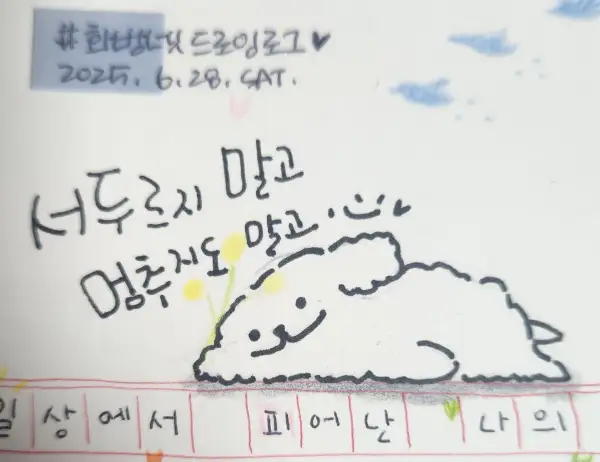 #회방너덧드로잉로그♥
2025. 6. 28. SAT.
서두르지 말고
멈추지도 말고
일상에서 피어난 나의